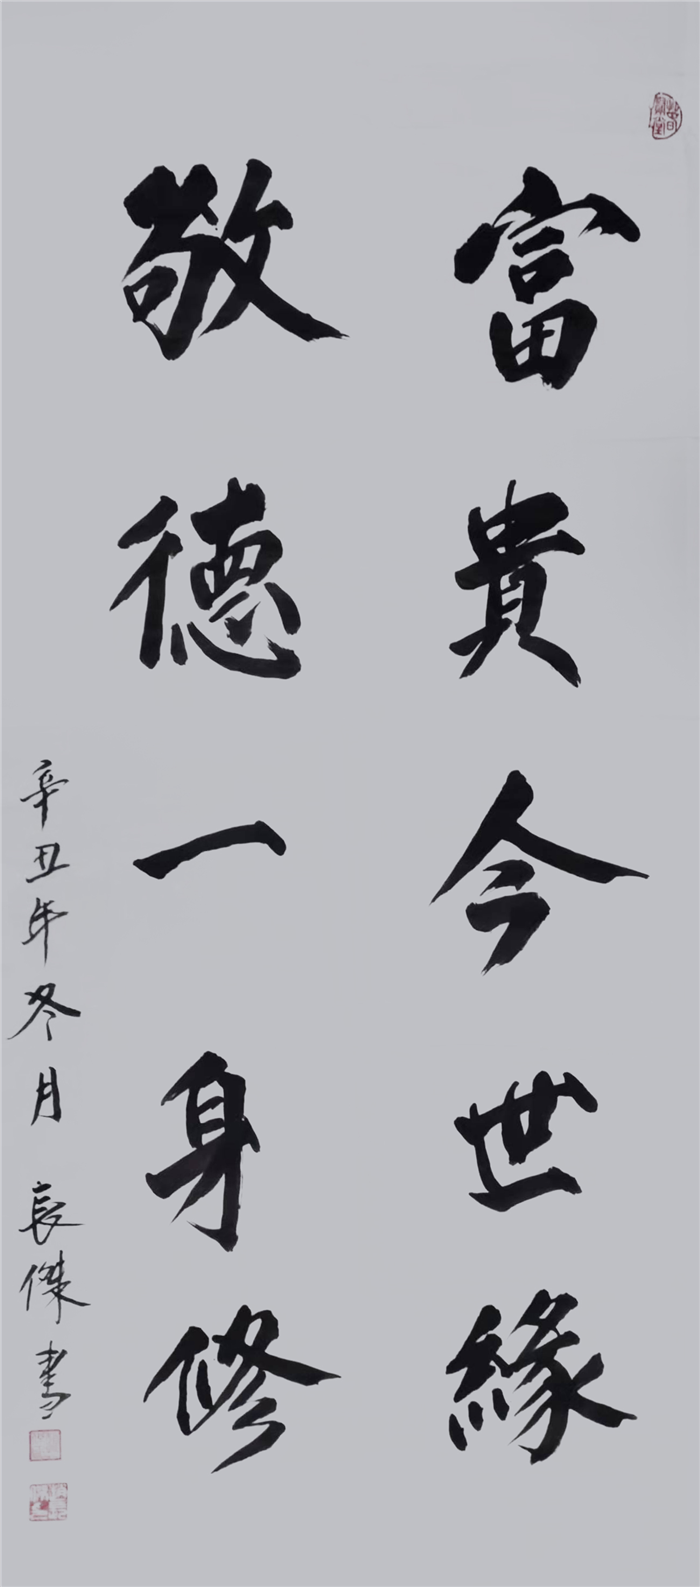 富貴今世緣
敬德一身修
辛丑年冬月 長傑書